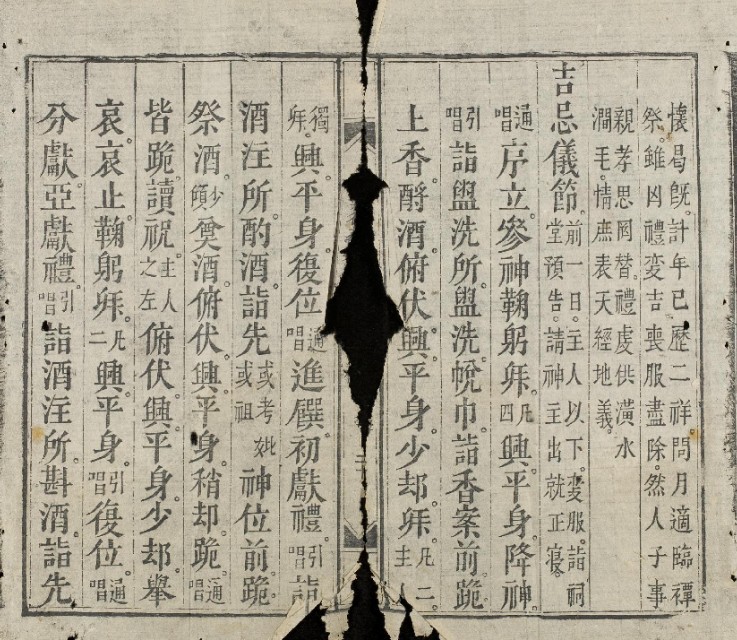 懷曷旣。計年已歷二祥。問月適臨禫
祭。雖凶禮変吉。喪服盡除。然人子事
親。孝思罔替。禮虔供潢水
澗毛。情庶表天經地義。
吉忌儀節。前一日。主人以下。変服。詣祠堂預告。請神主出就正寢。
通唱序立。參神鞠躬。拜凡四興。平身。降神。
引唱詣盥洗所。盥洗。帨巾。詣香案前跪。
上香。酹酒。俯伏。興。平身。少却。拜。凡二主
獨拜。興。平身。復位。通唱進饌。初獻禮。引唱詣
酒注所。酌酒。詣先或考妣或祖神位前跪。
祭酒。少傾奠酒。俯伏。興。平身。稍却。跪。通唱
皆跪。讀祝主人之左俯伏。興。平身。少却。舉
哀。哀止。鞠躬。拜凡二興。平身。引唱復位。通唱
分獻。亞獻禮。引唱詣酒注所。斟酒。詣先